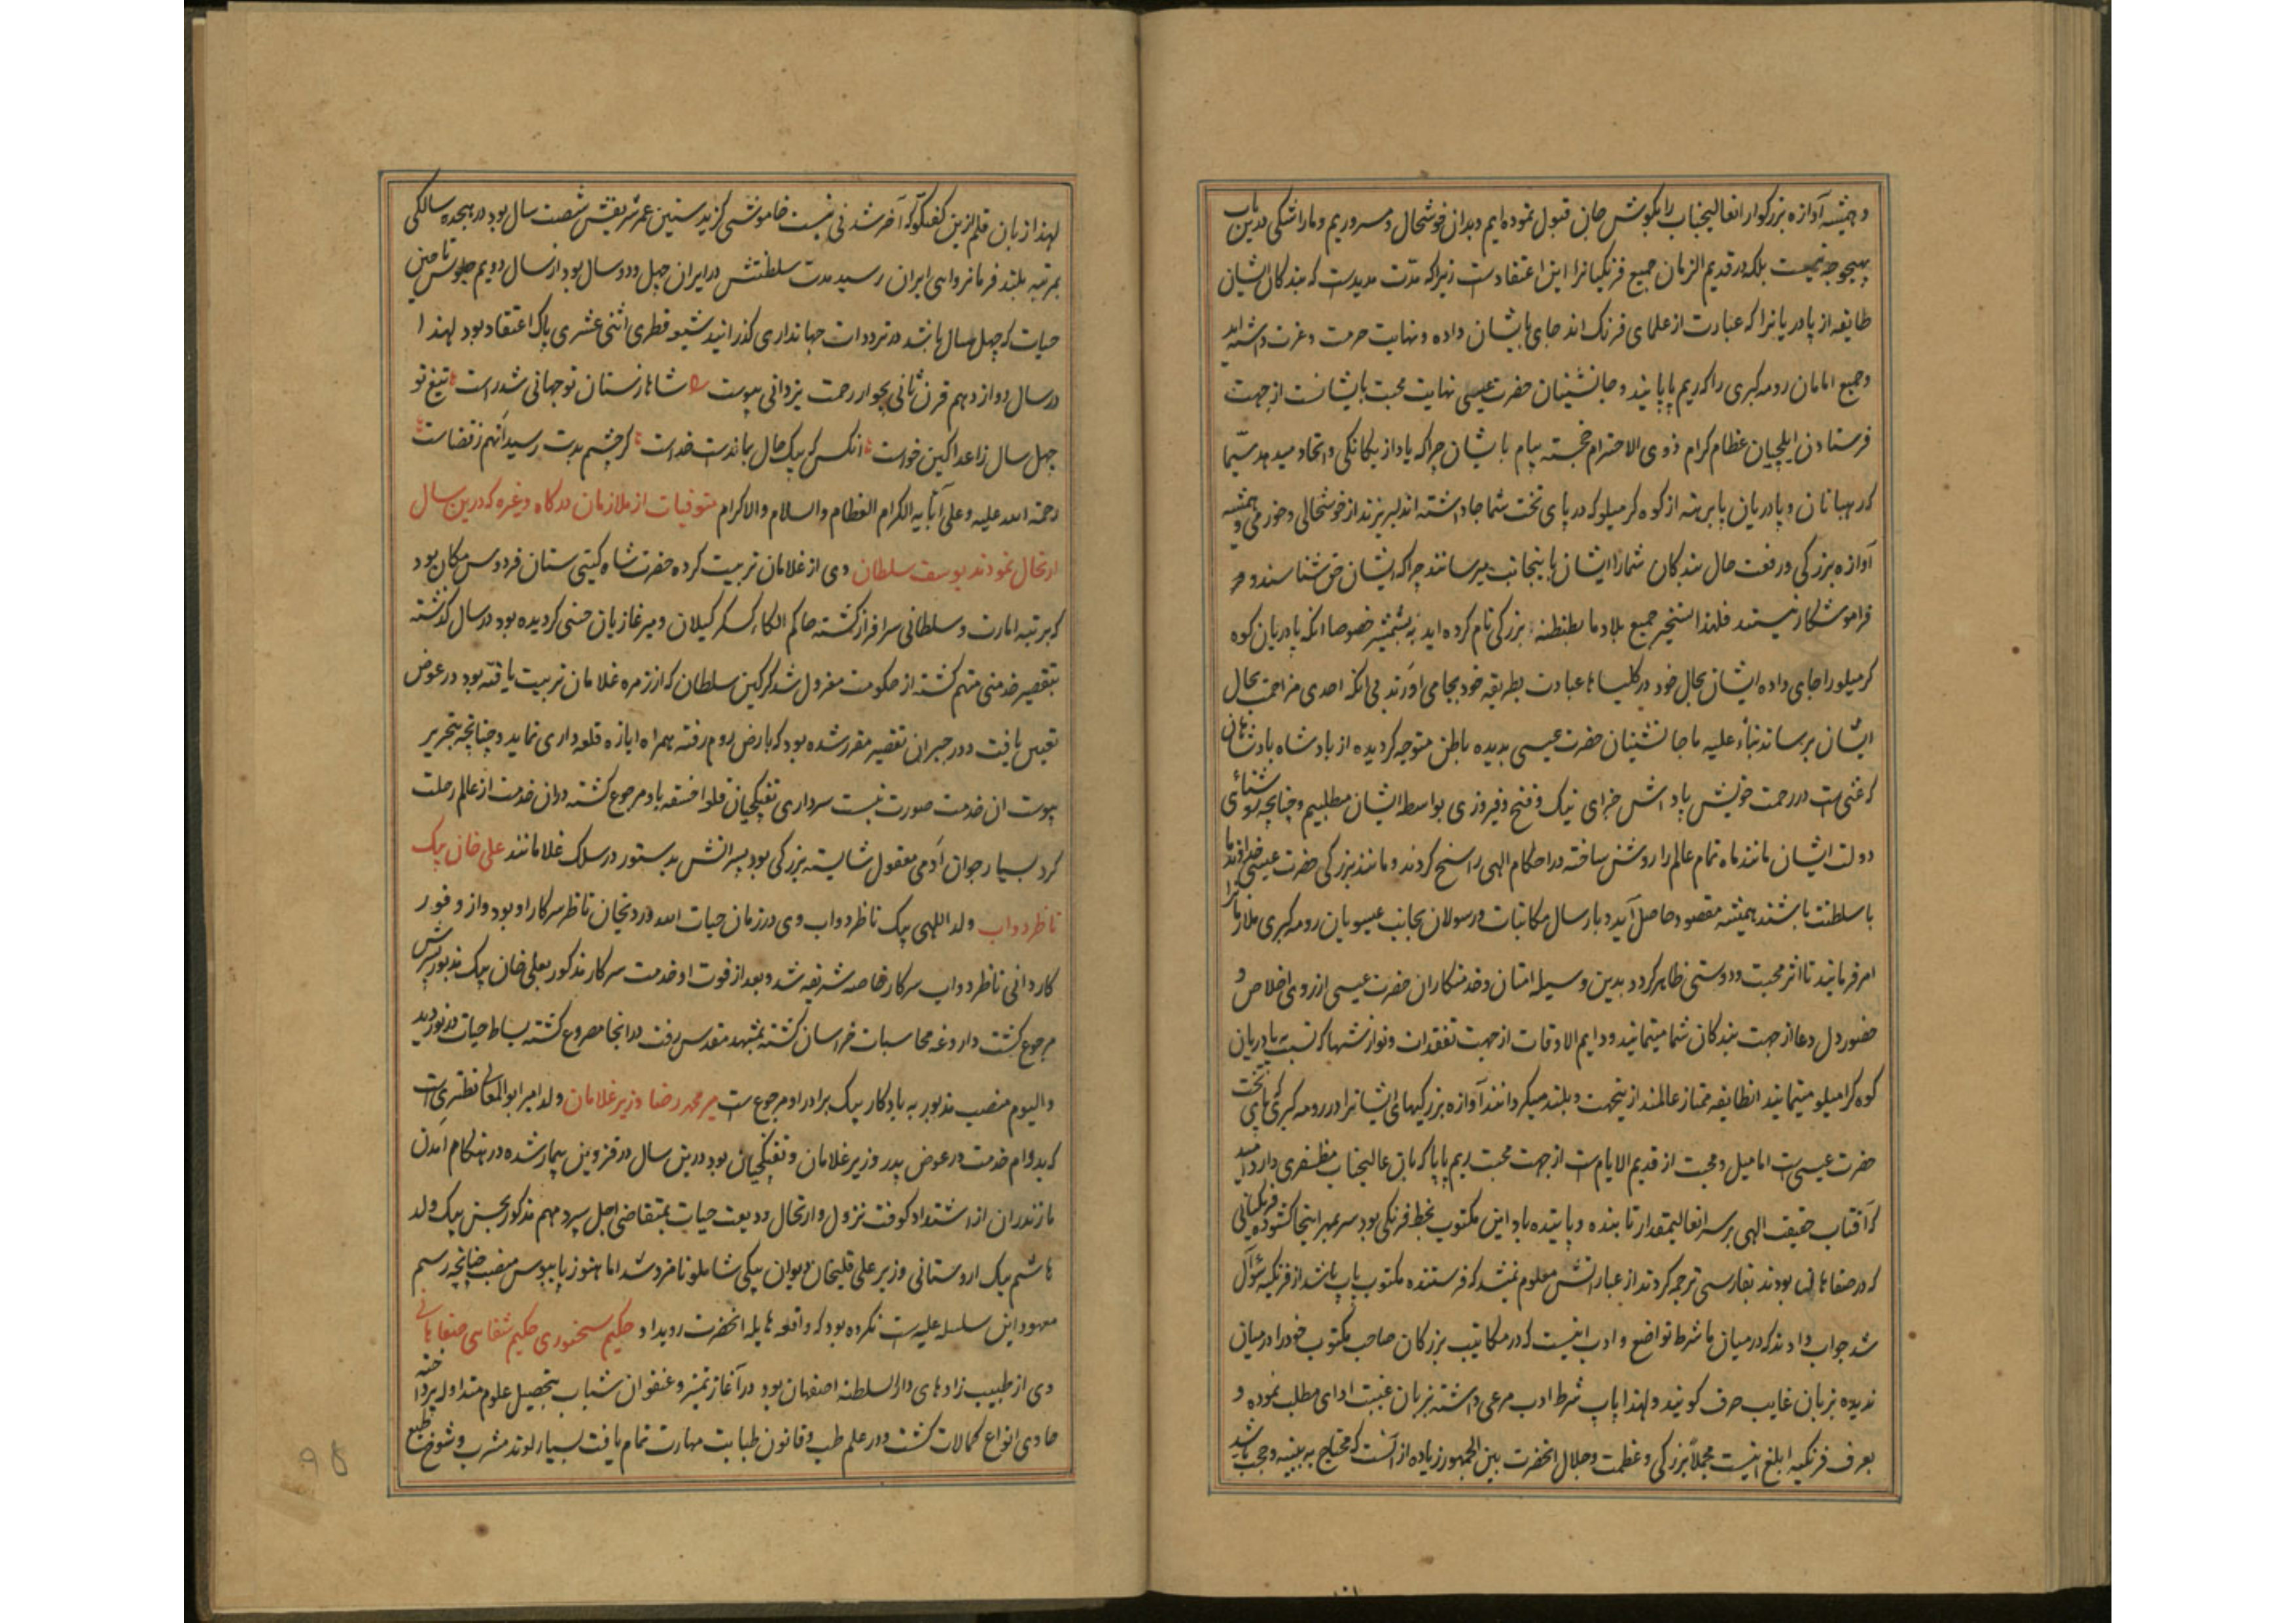 و همیشه آوازه بزرکوار انعالیجناب را بکوش جان قبول نموده ایم و بدان خوشحال و مسروریم و ما را شکی درین باب
بهیچوجه نیست بلکه در قدیم الزمان جمیع فرنکیانرا این اعتقادست زیرا که مدت مدیدست که بندکان ایشان
طایفه از پادریانرا که عبارت از علمای فرنک اند جای بایشان داده و نهایت حرمت و عزت داشته اید
و جمیع امامان رومه کبری را که ریم پاپایند و جانشینان حضرت عیسی نهایت محبت بایشانست از جهت
فرستادن ایلچیان عظام کرام ذوی الاحترام خجسته پیام بایشان چرا که یاد از یکانکی و اتحاد میدهد سیما
که رهبانان و پادریان پابرهنه از کوه کرمیلو که در پای تخت شما جا داشته اند لبریزند از خوشحالی و خورمی و همیشه
آوازه بزرکی و رفعت حال بندکان شما را ایشان باینجانب میرسانند چرا که ایشان حق شناسند و
فراموشکار نیستند فلهذا تسخیر جمیع بلاد ما بطنطنه بزرکی نام کرده اید نه بشمشیر خصوصا انکه پادریان کوه
کرمیلو را جای داده ایشان بحال خود در کلیساها عبادت بطریقه خود بجا می آورند بی انکه احدی مزاحمت بحال
ایشان برساند بناء علیه ما جانشینان حضرت عیسی بدیده باطن متوجه کردیده از بادشاه بادشاهان
که غنیست در رحمت خویش پاداش جزای نیک و فتح و فیروزی بواسطه ایشان مطلبیم و چنانچه روشنائی
دولت ایشان مانند ماه تمام عالم را روشن ساخته در احکام الهی راسخ کردند و مانند بزرکی حضرت عیسی
با سلطنت باشند همیشه مقصود حاصل آید و بارسال مکاتبات و رسولان بجانب عیسویان رومه کبری ملازمانرا
امر فرمایند تا اثر محبت و دوستی ظاهر کردد بدین وسیله امتان و خدمتکاران حضرت عیسی از روی اخلاص و
حضور دل دعا از جهت بندکان شما مینمایند و دایم الاوقات از جهت تفقدات و نوازشها که نسبت بپادریان
کوه کرامیلو مینمایند انطایفه ممتاز عالمند از ینجهت و بلند میکردانند آوازه بزرکیهای ایشانرا در رومه کبری که پای تخت
حضرت عیسی است اما میل و محبت از قدیم الایام است از جهت محبت ریم پاپا که بان عالیجناب مظفری دارد امید
که آفتاب حقیقت الهی بر سر انعالیمقدار تابنده و پاینده باد این مکتوب بخط فرنکی بود سر بمهر اینجا کشوده فرنکیانی
که در صفاهان بودند بفارسی ترجمه کردند از عبارتش معلوم نمیشد که فرستنده مکتوب پاپ باشد از فرنکیه سؤال
شد جواب دادند که در میان ما شرط تواضع و ادب اینست که در مکاتیب بزرکان صاحب مکتوب خود را در میان
ندیده بزبان غایب حرف کویند و لهذا پاپ شرط ادب مرعی داشته بزبان غیبت ادای مطلب نموده و
بعرف فرنکیه ابلغ اینست مجملا بزرکی و عظمت و جلال انحضرت بین الجمهور زیاده از آنست که محتاج به بینه و حجت باشد
لهذا زبان قلم ازین کفتکو که آخر شدنی نیست خاموشی کزید سنین عمر شریفش شصت سال بود در هیجده سالکی
بمرتبه بلند فرمانروایی ایران رسید مدت سلطنتش در ایران چهل و دو سال بود از سال دویم جلوس تا حین
حیات که چهل سال باشد در ترددات جهانداری کذرانید شیعه فطری اثنی عشری پاک اعتقاد بود لهذا
در سال دوازدهم قرن ثانی بجوار رحمت یزدانی پیوست شاها ز ستان تو جهانی شد راست تیغ تو
چهل سال ز اعدا کین خواست انکس که بیک حال بماندست خداست کر چشم بدت رسید آنهم ز قضاست
رحمة الله علیه و علی آبایه الکرام العظام والسلام والاکرام متوفیات از ملازمان درکاه و غیره که درین سال
ارتحال نمودند یوسف سلطان وی از غلامان تربیت کرده حضرت شاه کیتی ستان فردوس مکان بود
که برتبه امارت و سلطانی سرافراز کشته حاکم الکاء کسکر کیلان و میر غازیان حسنی کردیده بود در سال کذشته
بتقصیر خدمتی متهم کشته از حکومت معزول شد کرکین سلطان که از زمره غلامان تربیت یافته بود در عوض
تعیین یافت و در جبران تقصیر مقرر شده بود که بارض روم رفته همراه ابازه قلعه داری نماید و چنانچه بتحریر
پیوست ان خدمت صورت نبست سرداری تفنکچیان قلوا خسقه باو مرجوع کشته دران خدمت از عالم رحلت
کرد بسیار جوان آدمی معقول شایسته بزرکی بود پسرانش بدستور در سلک غلامانند علی خان بیک
ناظر دواب ولد اللهی بیک ناظر دواب وی در زمان حیات الله وردیخان ناظر سرکار او بود و از وفور
کاردانی ناظر دواب سرکار خاصه شریفه شد و بعد از فوت او خدمت سرکار مذکور بعلی خان بیک مذبور پسرش
مرجوع کشت داروغه محاسبات خراسان کشته بمشهد مقدس رفت در انجا مصروع کشته بساط حیات درنوردید
والیوم منصب مذبور به یادکار بیک برادر او مرجوع است میر محمد رضا وزیر غلامان ولد امیر ابوالمعالی نطنزی است
که بدوام خدمت در عوض پدر وزیر غلامان و تفنکچیان بود درین سال در قزوین بیمار شده در هنکام آمدن
مازندران از اشتداد کوفت نزول و ارتحال ودیعت حیات بمتقاضی اجل سپرد مهم مذکور بحسن بیک ولد
هاشم بیک اردستانی وزیر علی قلیخان دیوان بیکی شاملو نامزد شد اما هنوز پایبوس منصب چنانچه رسم
معهود این سلسله علیه است نکرده بود که واقعه هایله انحضرت رویداد و حکیم سخنوری حکیم شفایی صفاهانی
وی از طبیب زادهای دارالسلطنه اصفهان بود در آغاز تمیز و عنفوان شباب بتحصیل علوم متداوله پرداخته
حاوی انواع کمالات کشت و در علم طب و قانون طبابت مهارت تمام یافت بسیار لوند مشرب و شوخ طبع